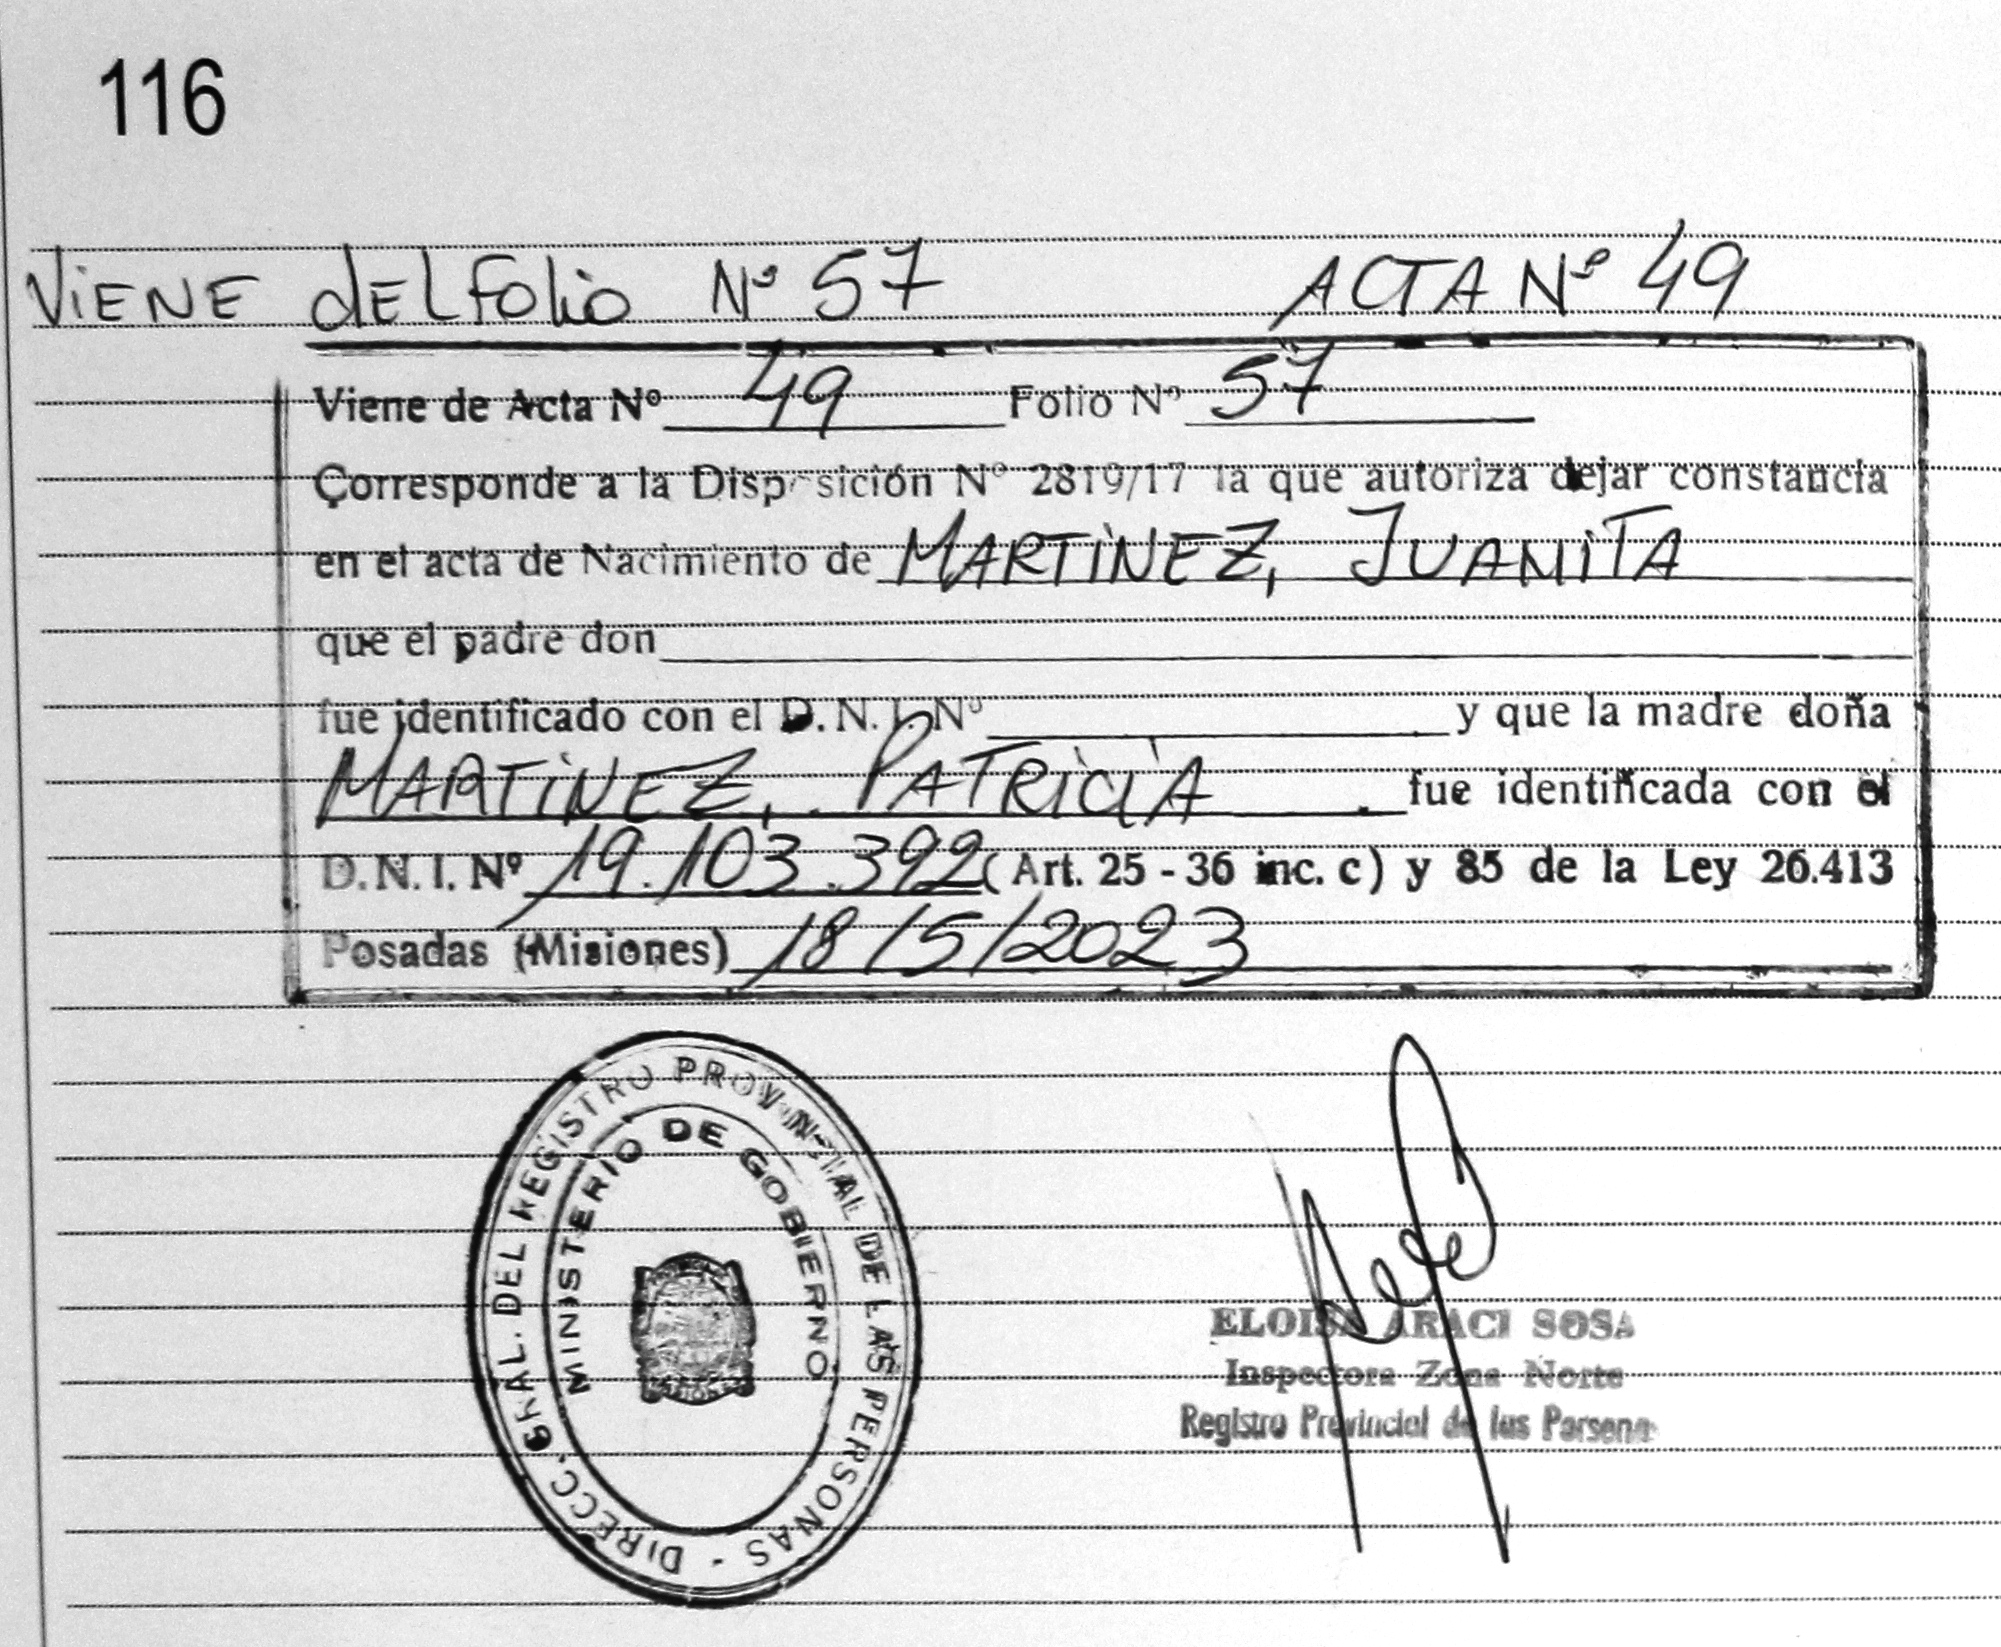 116
ViENE dEL Folio Nº 57 ACTA Nº 49
Viene de Acta Nº 49 Folio Nº 57
Corresponde a la Disposición Nº 2819/17 la que autoriza dejar constancia
en el acta de Nacimiento de MARTiNEZ, JUANiTA
que el padre don
fue identificado con el D.N.I. Nº y que la madre doña
MARTiNEZ, PATRiCiA fue identificada con el
D.N.I. Nº 19.103.392 (Art. 25 - 36 inc. c) y 85 de la Ley 26.413
Posadas (Misiones) 18/5/2023
DIRECC. GRAL. DEL REGISTRO PROVINCIAL DE LAS PERSONAS -
MINISTERIO DE GOBIERNO
ELOISA ARACI SOSA
Inspectora Zona Norte
Registro Provincial de las Personas